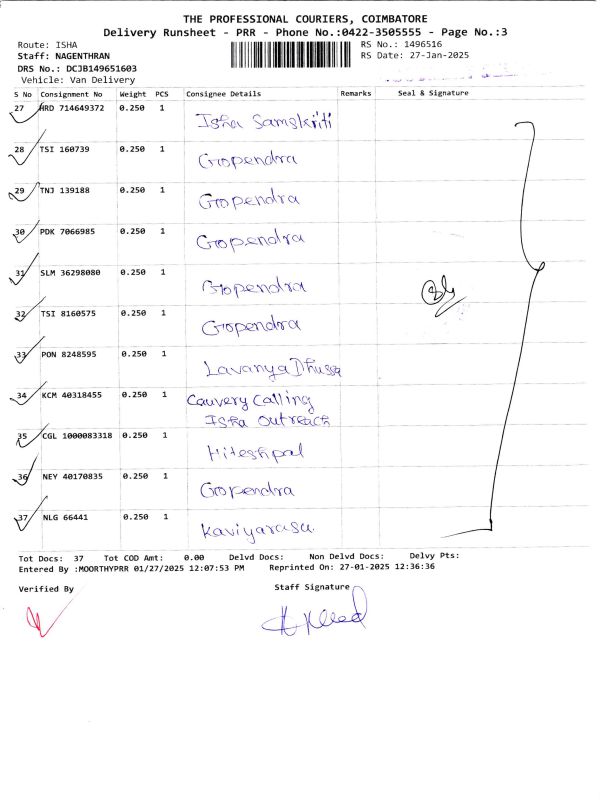 THE PROFESSIONAL COURIERS, COIMBATORE
Delivery Runsheet - PRR - Phone No.:0422-3505555 - Page No.:3
Route: ISHA RS No.: 1496516
Staff: NAGENTHRAN RS Date: 27-Jan-2025
DRS No.: DCJB149651603
Vehicle: Van Delivery
S No Consignment No Weight PCS Consignee Details Remarks Seal & Signature
27 HRD 714649372 0.250 1
Isha Samskriti
28 TSI 160739 0.250 1
Gopendra
29 TNJ 139188 0.250 1
Gopendra
30 PDK 7066985 0.250 1
Gopendra
31 SLM 36298080 0.250 1
Gopendra
32 TSI 8160575 0.250 1
Gopendra
33 PON 8248595 0.250 1
Lavanya Dhusa
34 KCM 40318455 0.250 1
Cauvery Calling
Isha Outreach
35 CGL 1000083318 0.250 1
Hiteshpal
36 NEY 40170835 0.250 1
Gopendra
37 NLG 66441 0.250 1
Kaviyarasu.
Tot Docs: 37 Tot COD Amt: 0.00 Delvd Docs: Non Delvd Docs: Delvy Pts:
Entered By :MOORTHYPRR 01/27/2025 12:07:53 PM Reprinted On: 27-01-2025 12:36:36
Verified By Staff Signature